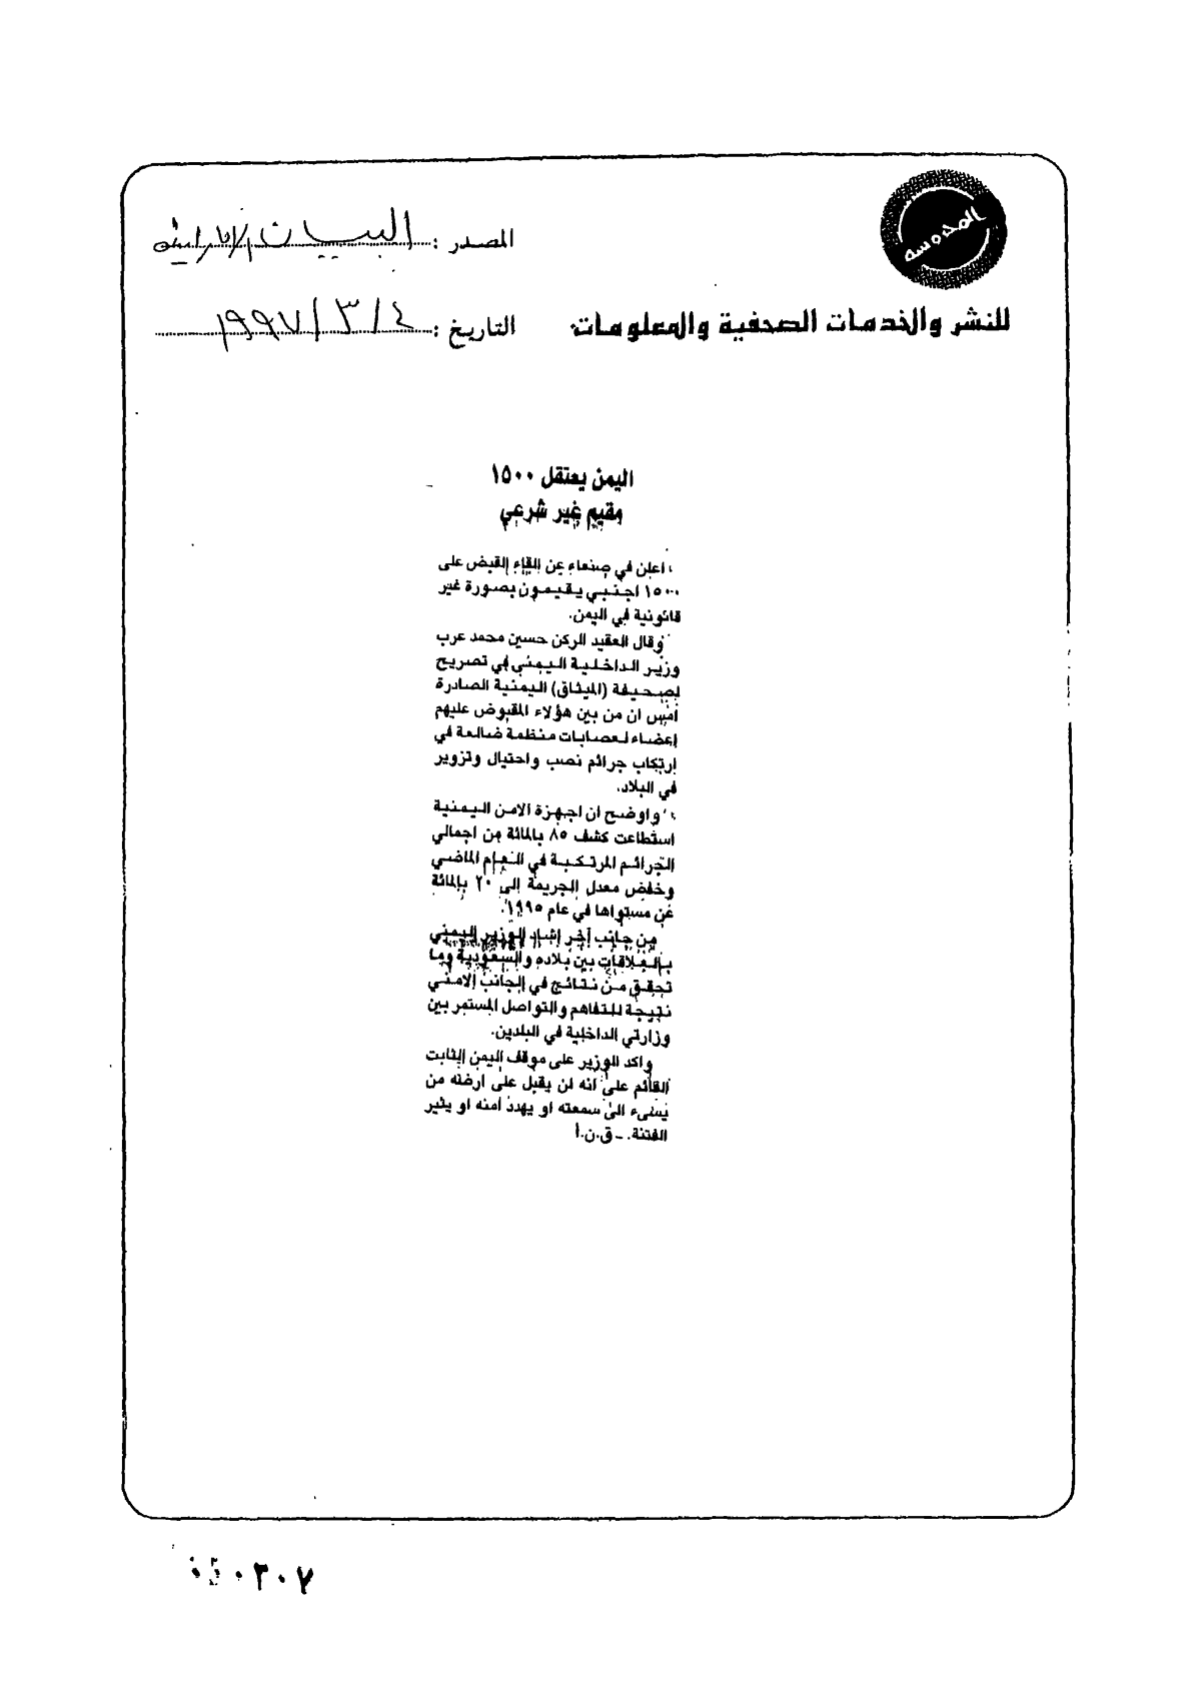 المحروسة
المصدر : البيان الإماراتية
للنشر والخدمات الصحفية والمعلومات
التاريخ : ٤ / ٣ / ١٩٩٧
اليمن يعتقل ١٥٠٠
مقيم غير شرعي
اعلن في صنعاء عن القاء القبض على
١٥٠٠ اجنبي يقيمون بصورة غير
قانونية في اليمن.
وقال العقيد الركن حسين محمد عرب
وزير الداخلية اليمني في تصريح
لصحيفة (الميثاق) اليمنية الصادرة
امس ان من بين هؤلاء المقبوض عليهم
اعضاء لعصابات منظمة ضالعة في
ارتكاب جرائم نصب واحتيال وتزوير
في البلاد.
واوضح ان اجهزة الامن اليمنية
استطاعت كشف ٨٥ بالمائة من اجمالي
الجرائم المرتكبة في العام الماضي
وخفض معدل الجريمة الى ٢٠ بالمائة
عن مستواها في عام ١٩٩٥.
من جانب آخر اشاد الوزير اليمني
بالعلاقات بين بلاده والسعودية وما
تحقق من نتائج في الجانب الامني
نتيجة للتفاهم والتواصل المستمر بين
وزارتي الداخلية في البلدين.
واكد الوزير على موقف اليمن الثابت
القائم على انه لن يقبل على ارضه من
يسيء الى سمعته او يهدد أمنه او يثير
الفتنة. ـ ق.ن.أ